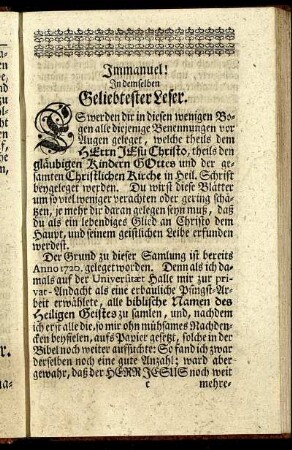 Immanuel!
In demselben
Geliebtester Leser.
ES werden dir in diesen wenigen Bo-
gen alle diejenige Benennungen vor
Augen geleget, welche theils dem
HErrn JEsu Christo, theils den
gläubigen Kindern GOttes und der ge-
samten Christlichen Kirche in Heil. Schrift
beygeleget werden. Du wirst diese Blätter
um so viel weniger verachten oder gering schä-
tzen, je mehr dir daran gelegen seyn muß, daß
du als ein lebendiges Glied an Christo dem
Haupt, und seinem geistlichen Leibe erfunden
werdest.
Der Grund zu dieser Samlung ist bereits
Anno 1720. geleget worden. Denn als ich da-
mals auf der Universität Halle mir zur pri-
vat-Andacht als eine erbauliche Pfingst-Ar-
beit erwählete, alle biblische Namen des
Heiligen Geistes zu samlen, und, nachdem
ich erst alle die, so mir ohn mühsames Nachden-
cken beyfielen, aufs Papier gesetzt, solche in der
Bibel noch weiter aufsuchte: So fand ich zwar
derselben noch eine gute Anzahl; ward aber
gewahr, daß der HERR JESUS noch weit
c mehre-